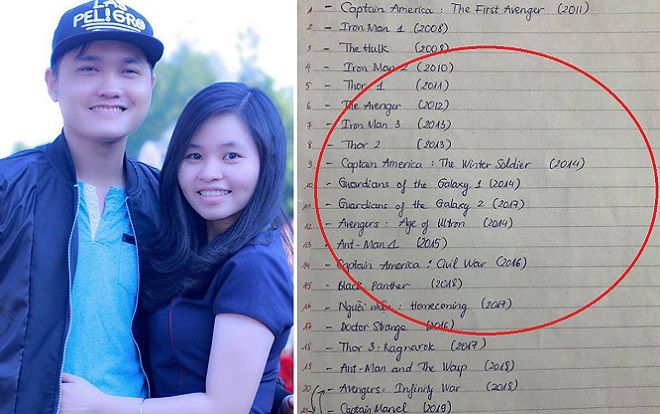 LAS
PELIGRO
1 - Captain America : The First Avenger (2011)
2 - Iron Man 1 (2008)
3 - The Hulk (2008)
4 - Iron Man 2 (2010)
5 - Thor 1 (2011)
6 - The Avenger (2012)
7 - Iron Man 3 (2013)
8 - Thor 2 (2013)
9 - Captain America : The Winter Soldier (2014)
10 - Guardians of the Galaxy 1 (2014)
11 - Guardians of the Galaxy 2 (2017)
12 - Avengers : Age of Ultron (2014)
13 - Ant-Man 1 (2015)
14 - Captain America : Civil War (2016)
15 - Black Panther (2018)
16 - Người nhện : Homecoming (2017)
17 - Doctor Strange (2016)
18 - Thor 3 : Ragnarok (2017)
19 - Ant-Man and The Wasp (2018)
20 - Avengers : Infinity War (2018)
21 - Captain Marvel (2019)